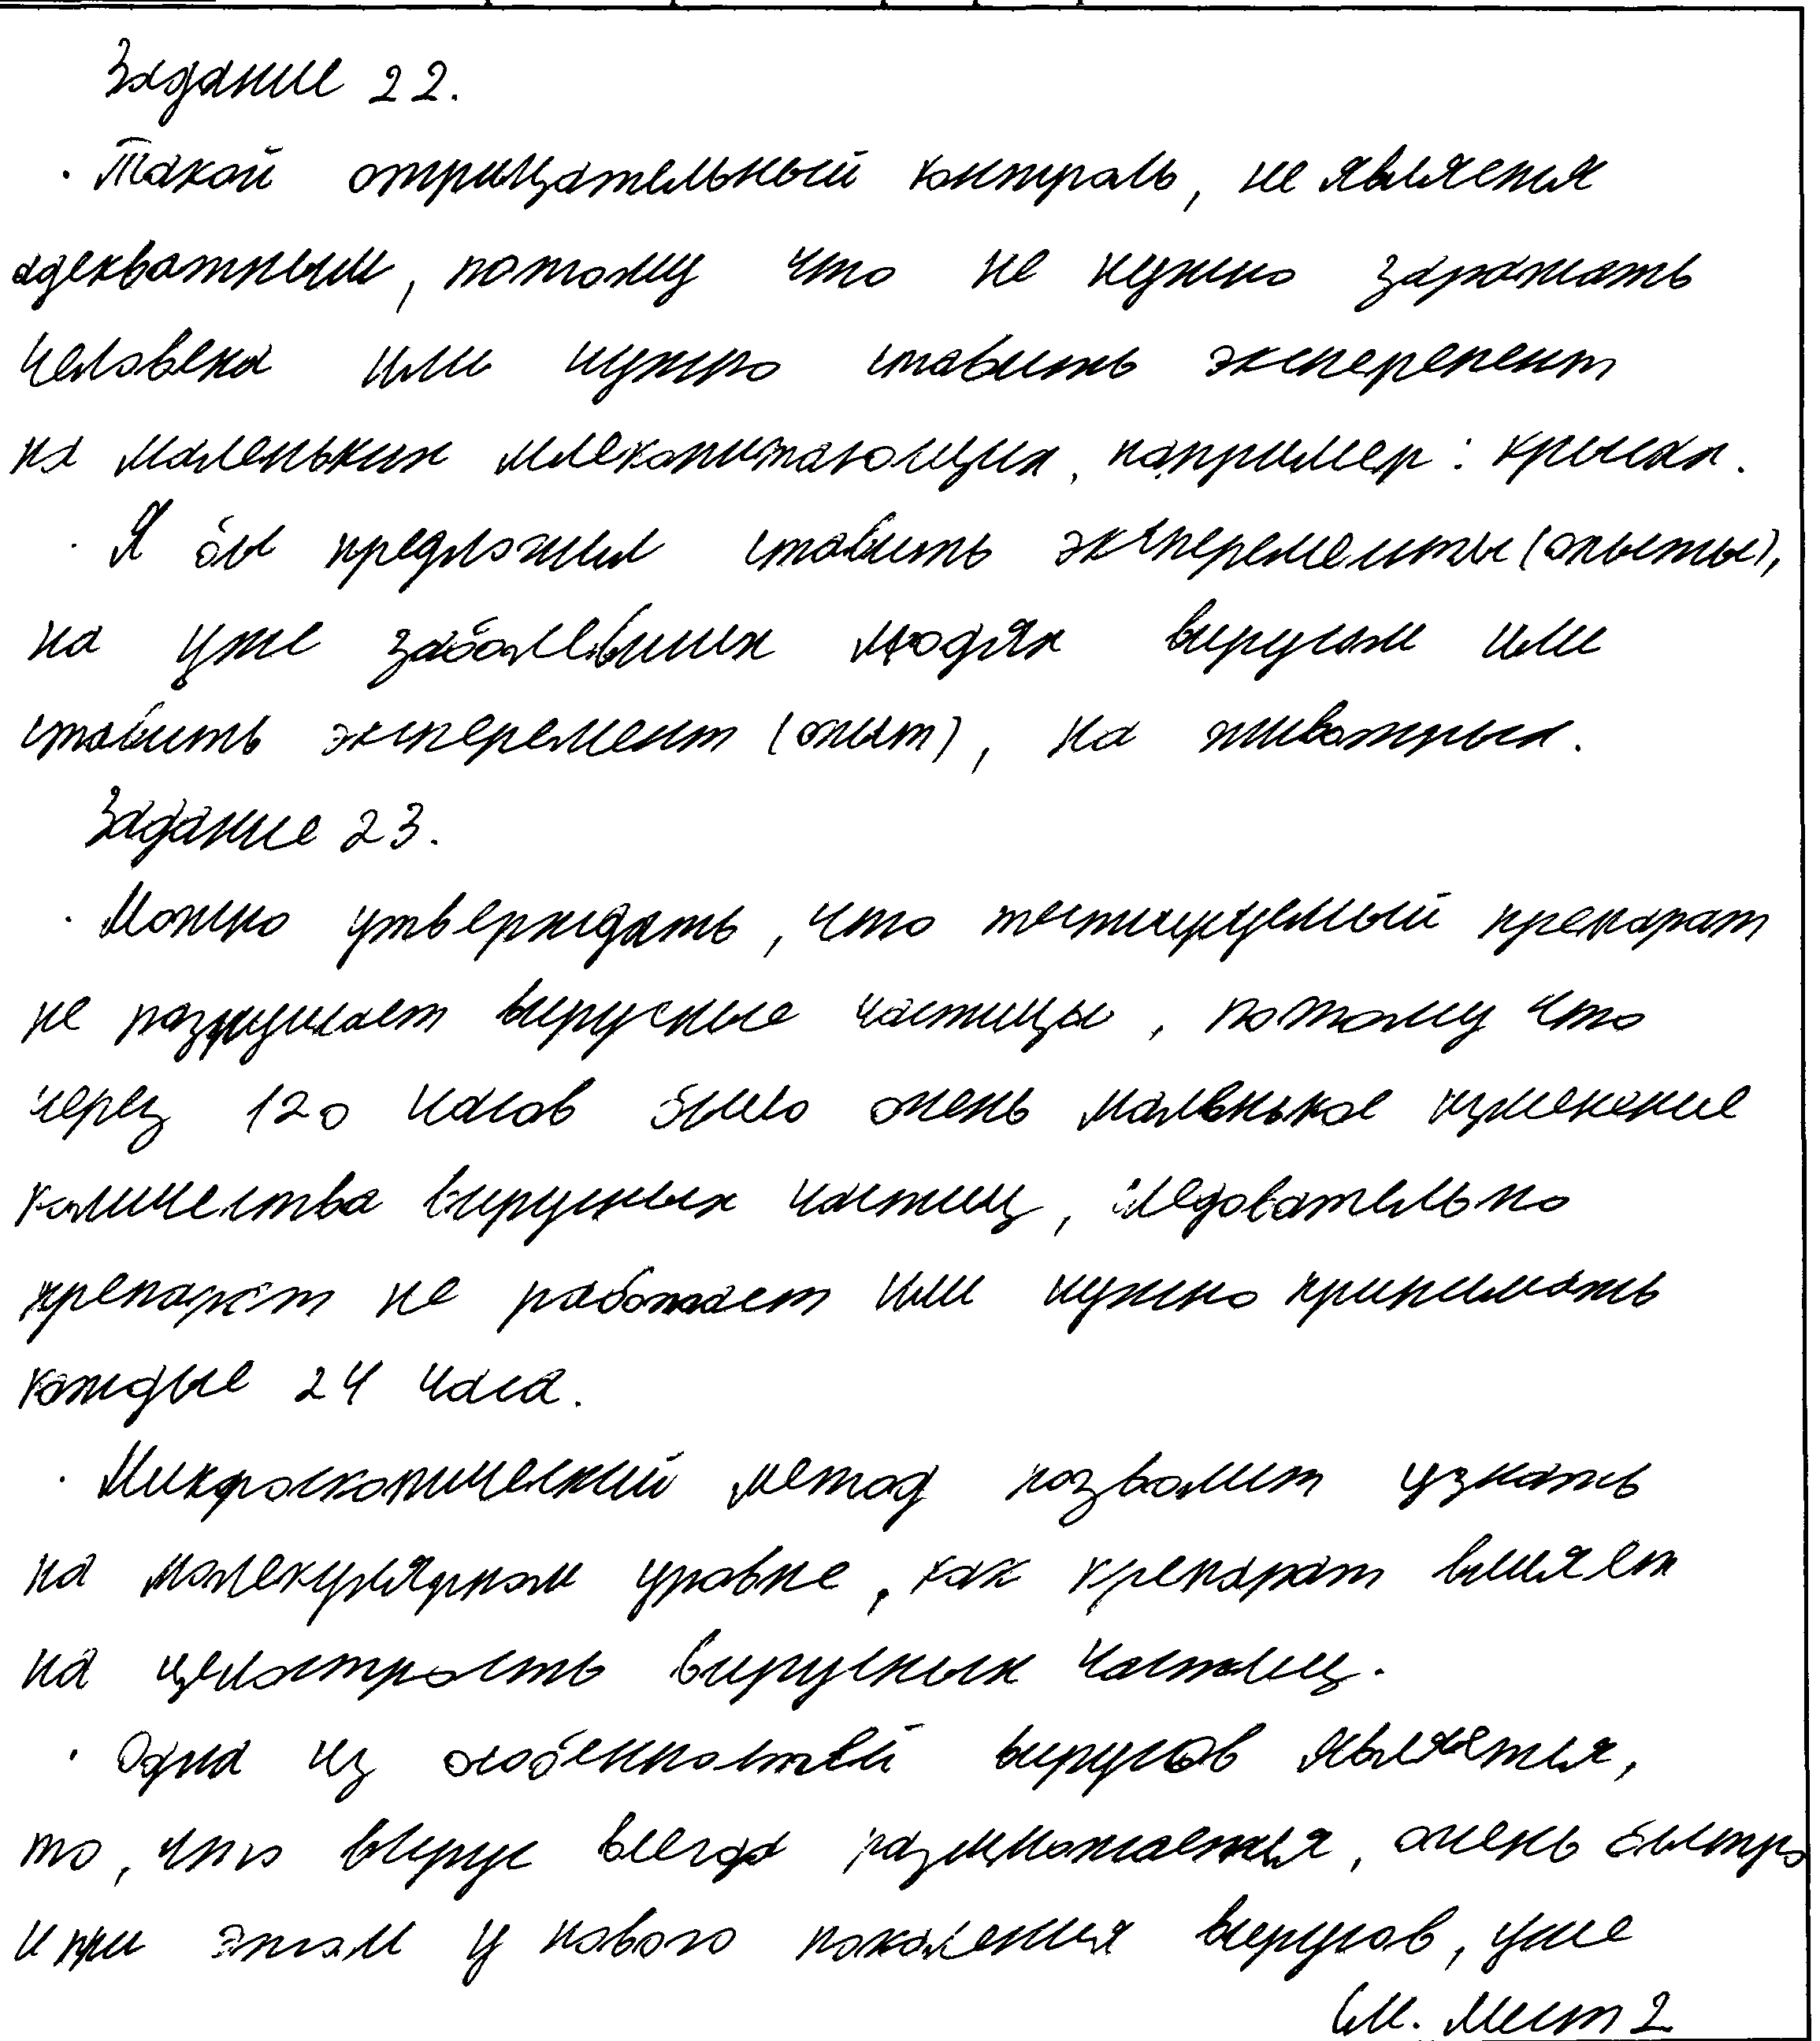 Задание 22.
· Такой отрицательный контроль, не является
адекватным, потому что не нужно заражать
человека или нужно ставить эксперепент
на маленьких млекопитающих, например: крысах.
· Я бы предложил ставить эксперементы (опыты),
на уже заболевших людях вирусом или
ставить эксперемент (опыт), на животных.
Задание 23.
· Можно утверждать, что тестируемый препарат
не разрушает вирусные частицы, потому что
через 120 часов было очень маленькое изменение
количества вирусных частиц, следовательно
препарат не работает или нужно принимать
каждые 24 часа.
· Микроскопический метод позволит узнать
на молекулярном уровне, как препарат влияет
на целостность вирусных частиц.
· Одна из особенностей вирусов является,
то, что вирус всегда размножается, очень быстро
и при этом у нового поколения вирусов, уже
См. Лист 2